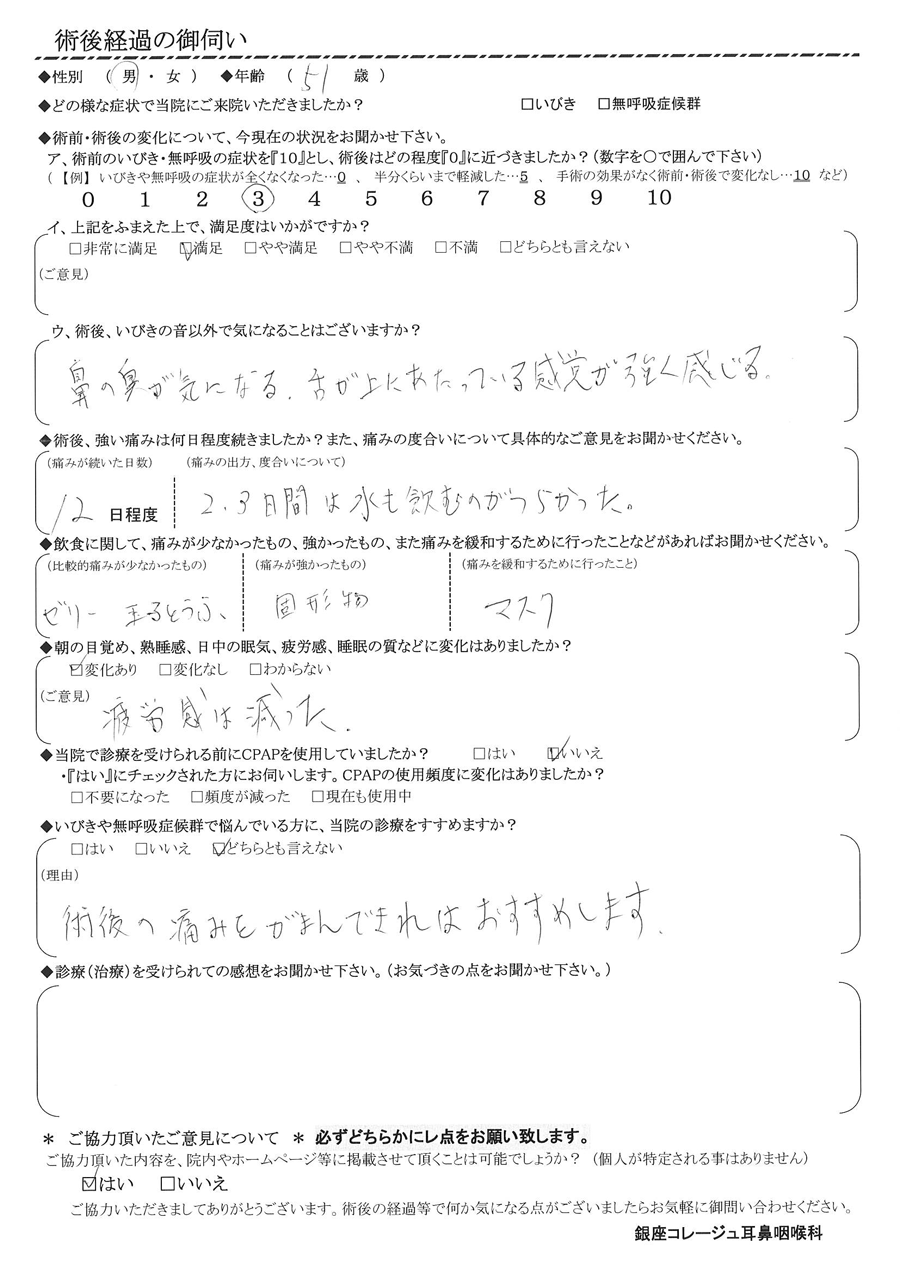 術後経過の御伺い
◆性別 ( 男 ・ 女 ) ◆年齢 ( 51 歳 )
◆どの様な症状で当院にご来院いただきましたか? □いびき □無呼吸症候群
◆術前・術後の変化について、今現在の状況をお聞かせ下さい。
ア、術前のいびき・無呼吸の症状を『10』とし、術後はどの程度『0』に近づきましたか?(数字を〇で囲んで下さい)
(【例】いびきや無呼吸の症状が全くなくなった…0 、 半分くらいまで軽減した…5 、 手術の効果がなく術前・術後で変化なし…10 など)
0 1 2 3 4 5 6 7 8 9 10
イ、上記をふまえた上で、満足度はいかがですか?
□非常に満足 ☑満足 □やや満足 □やや不満 □不満 □どちらとも言えない
(ご意見)
ウ、術後、いびきの音以外で気になることはございますか?
鼻の臭が気になる。舌が上にあたっている感覚が強く感じる。
◆術後、強い痛みは何日程度続きましたか?また、痛みの度合いについて具体的なご意見をお聞かせください。
(痛みが続いた日数) (痛みの出方、度合いについて)
12 日程度 2、3日間は水も飲むのがつらかった。
◆飲食に関して、痛みが少なかったもの、強かったもの、また痛みを緩和するために行ったことなどがあればお聞かせください。
(比較的痛みが少なかったもの) (痛みが強かったもの) (痛みを緩和するために行ったこと)
ゼリー 玉子とうふ、 固形物 マスク
◆朝の目覚め、熟睡感、日中の眠気、疲労感、睡眠の質などに変化はありましたか?
☑変化あり □変化なし □わからない
(ご意見)
疲労感は減った。
◆当院で診療を受けられる前にCPAPを使用していましたか? □はい ☑いいえ
・『はい』にチェックされた方にお伺いします。CPAPの使用頻度に変化はありましたか?
□不要になった □頻度が減った □現在も使用中
◆いびきや無呼吸症候群で悩んでいる方に、当院の診療をすすめますか?
□はい □いいえ ☑どちらとも言えない
(理由)
術後の痛みをがまんできればおすすめします。
◆診療(治療)を受けられての感想をお聞かせ下さい。(お気づきの点をお聞かせ下さい。)
＊ ご協力頂いたご意見について ＊ 必ずどちらかにレ点をお願い致します。
ご協力頂いた内容を、院内やホームページ等に掲載させて頂くことは可能でしょうか? (個人が特定される事はありません)
☑はい □いいえ
ご協力いただきましてありがとうございます。術後の経過等で何か気になる点がございましたらお気軽に御問い合わせください。
銀座コレージュ耳鼻咽喉科